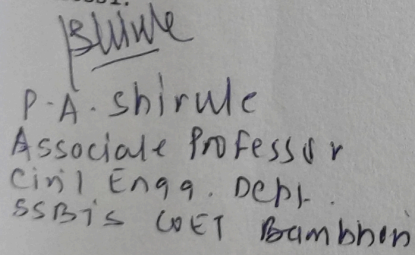 P. A. Shirule
Associate Professor
Civil Engg. Dept.
SSBT's COET Bambhori